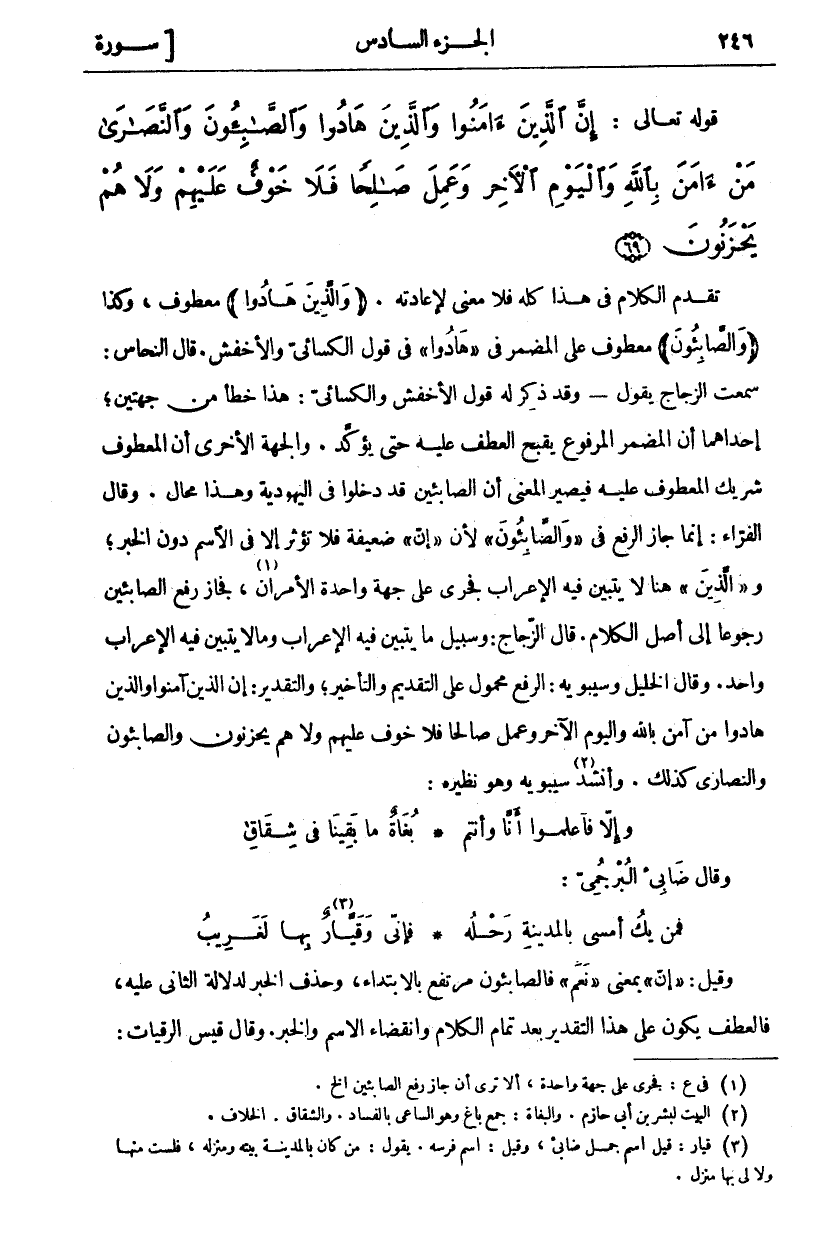 ٢٤٦ الجزء السادس [ سورة
قوله تعالى : إِنَّ ٱلَّذِينَ ءَامَنُوا وَٱلَّذِينَ هَادُوا وَٱلصَّٰبِئُونَ وَٱلنَّصَٰرَىٰ
مَنْ ءَامَنَ بِٱللَّهِ وَٱلْيَوْمِ ٱلْأٓخِرِ وَعَمِلَ صَٰلِحًا فَلَا خَوْفٌ عَلَيْهِمْ وَلَا هُمْ
يَحْزَنُونَ ٦٩
تقدم الكلام فى هذا كله فلا معنى لإعادته . ﴿وَالَّذِينَ هَادُوا﴾ معطوف ، وكذا
﴿وَالصَّابِئُونَ﴾ معطوف على المضمر فى «هَادُوا» فى قول الكسائىّ والأخفش. قال النحاس :
سمعت الزجاج يقول — وقد ذكر له قول الأخفش والكسائىّ : هذا خطأ من جهتين؛
إحداهما أن المضمر المرفوع يقبح العطف عليه حتى يؤكَّد . والجهة الأخرى أن المعطوف
شريك المعطوف عليه فيصير المعنى أن الصابئين قد دخلوا فى اليهودية وهذا محال . وقال
الفرّاء : إنما جاز الرفع فى «وَالصَّابِئُونَ» لأن «إنّ» ضعيفة فلا تؤثر إلا فى الآسم دون الخبر؛
و « الَّذِينَ » هنا لا يتبين فيه الإعراب فجرى على جهة واحدة الأمران(١) ، فجاز رفع الصابئين
رجوعا إلى أصل الكلام. قال الزّجاج: وسبيل ما يتبين فيه الإعراب ومالا يتبين فيه الإعراب
واحد. وقال الخليل وسيبويه : الرفع محمول على التقديم والتأخير؛ والتقدير: إن الذين آمنوا والذين
هادوا من آمن بالله واليوم الآخر وعمل صالحا فلا خوف عليهم ولا هم يحزنون والصابئون
والنصارى كذلك . وأنشد(٢) سيبويه وهو نظيره :
وإلّا فآعلموا أَنَّا وأنتم * بُغَاةٌ ما بَقِينَا فى شِقَاقِ
وقال ضَابِئ البُرْجُمِىّ :
فمن يكُ أمسى بالمدينةِ رَحْلُه * فإنّى وَقَيَّارٌ(٣) بِها لَغَرِيبُ
وقيل: «إنّ» بمعنى «نَعَمْ» فالصابئون مرتفع بالابتداء، وحذف الخبر لدلالة الثانى عليه،
فالعطف يكون على هذا التقدير بعد تمام الكلام وانقضاء الاسم والخبر. وقال قيس الرقيات :
(١) فى ع : فجرى على جهة واحدة ، ألا ترى أن جاز رفع الصابئين الخ .
(٢) البيت لبشر بن أبي حازم . والبغاة : جمع باغ وهو الساعى بالفساد . والشقاق . الخلاف .
(٣) قيار : قيل اسم جمل ضابئ ، وقيل : اسم فرسه . يقول : من كان بالمدينة بيته ومنزله ، فلست منها
ولا لى بها منزل .